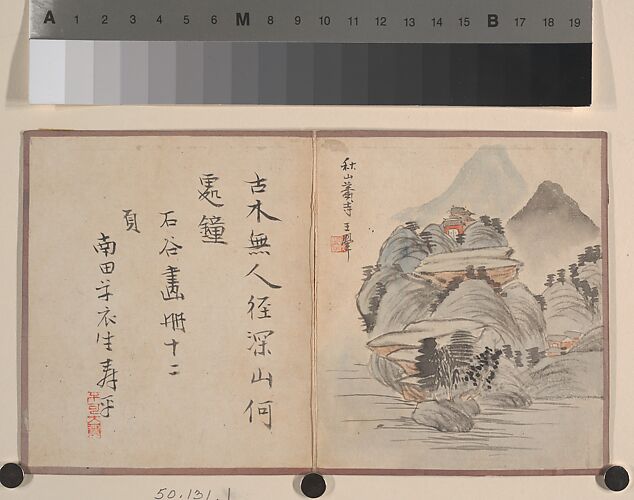 A 1 2 3 4 5 6 M 8 9 10 11 12 13 14 15 B 17 18 19
秋山蕭寺 王翬
古木無人径深山何
處鐘
石谷畫冊十二
頁
南田草衣生壽平
50.131.1